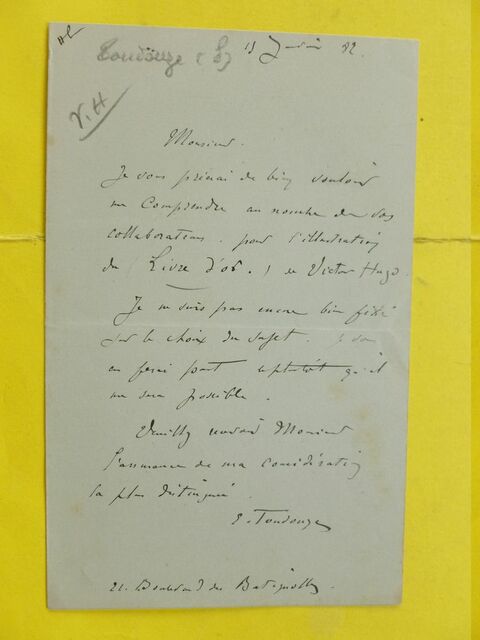 Toudouze (E)
15 Janvier 82.
V. H
Monsieur.
Je vous prierai de bien vouloir
me comprendre au nombre de vos
collaborateurs. pour l'illustration
du (Livre d'or.) de Victor Hugo.
Je ne suis pas encore bien fixé
sur le choix du sujet. je vous
en ferai part aptutôt qu'il
me sera possible.
Veuillez recevoir Monsieur
l'assurance de ma considération
la plus distinguée.
E. Toudouze
21. Boulevard des Batignolles.